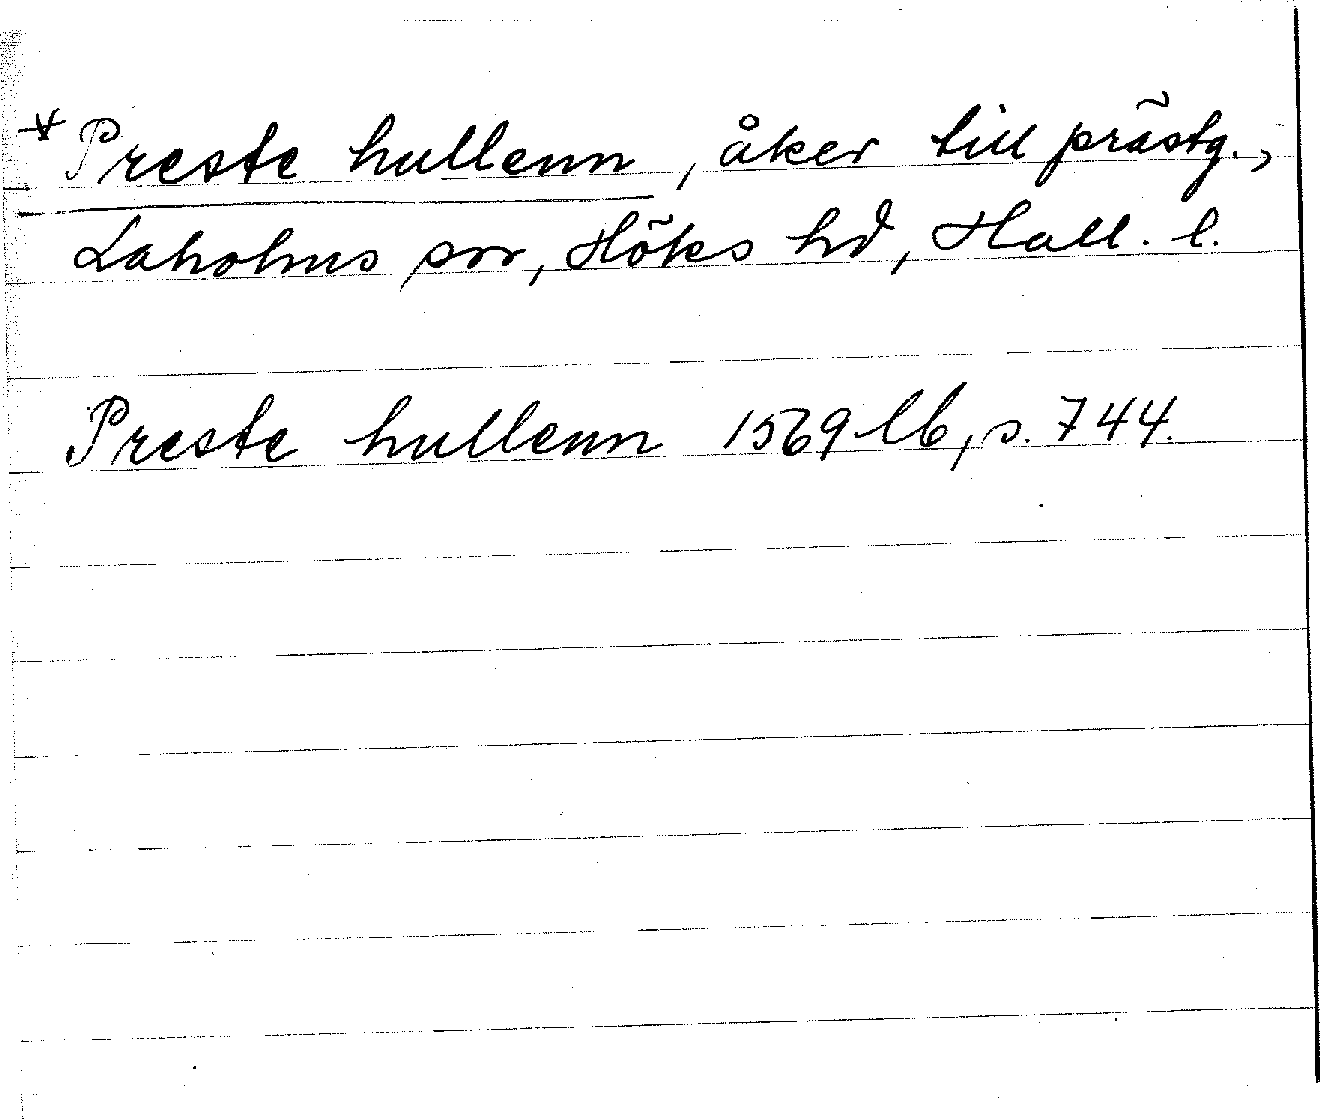 * Preste hullenn, åker till prästg.,
Laholms srr, Höks hd, Hall. l.
Preste hullenn 1569 lb, s. 744.